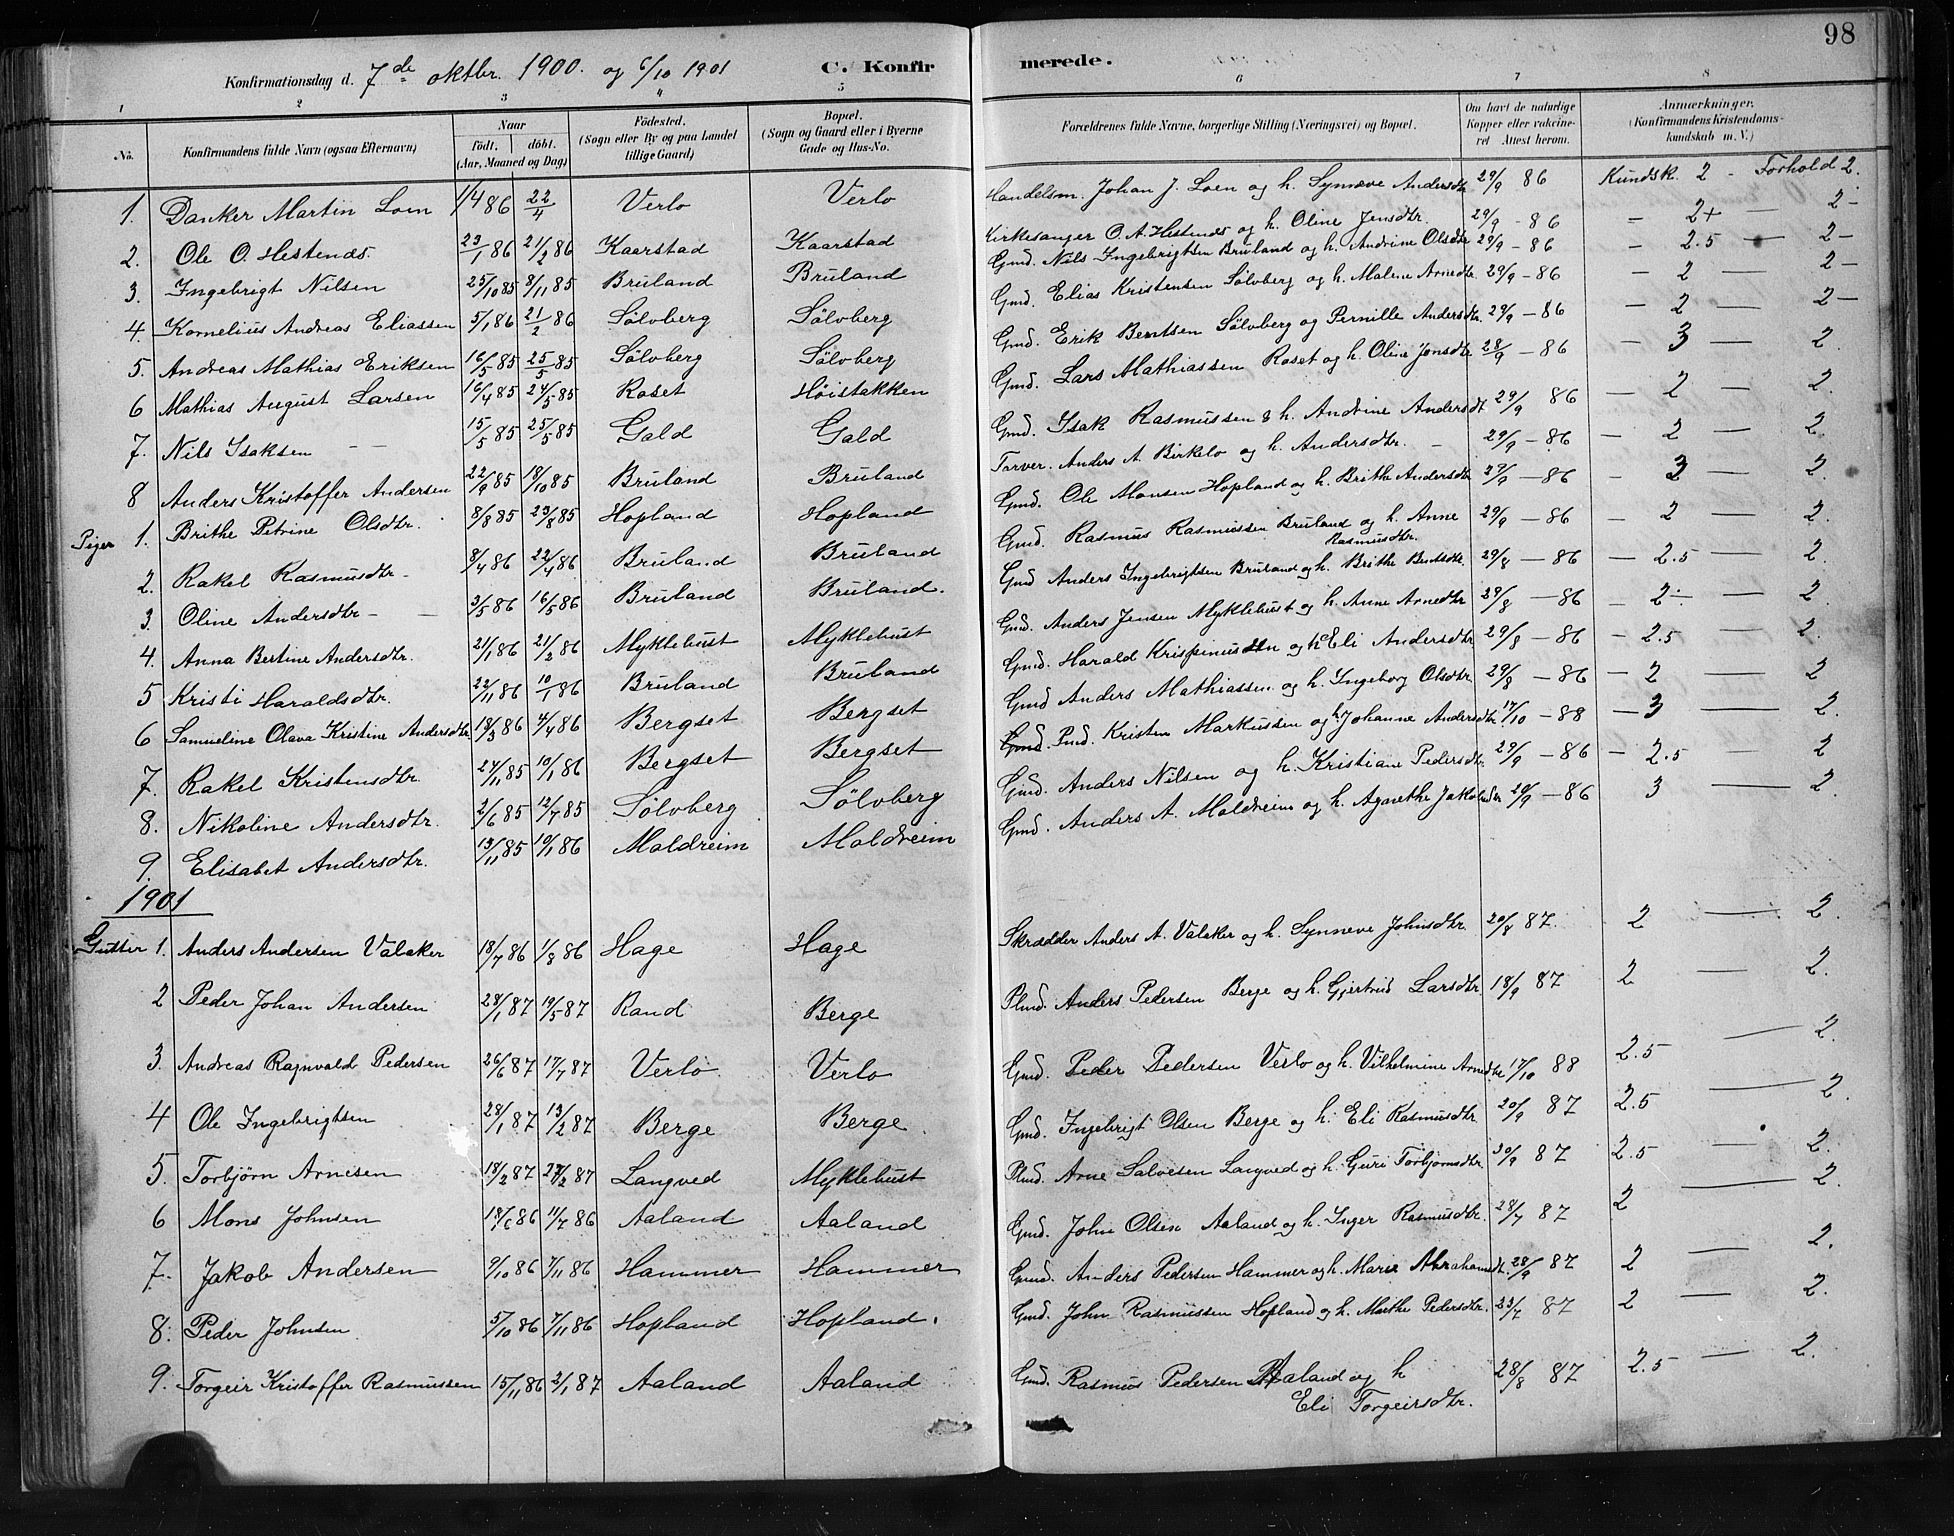 98
Konfirmationsdag d. 7de oktbr. 1900. og 6/10 1901 C. Konfirmerede.
1 2 3 4 5 6 7 8
No. Konfirmandens fulde Navn (ogsaa Efternavn) Naar födt. döbt. (Aar, Maaned og Dag) Födested. (Sogn eller By og paa Landet tillige Gaard) Bopæl. (Sogn og Gaard eller i Byerne Gade og Hus-No. Forældrenes fulde Navne, borgerlige Stilling (Næringsvei) og Bopæl. Om havt de naturlige Kopper eller vakcineret Attest herom. Anmærkninger. (Konfirmandens Kristendomskundskab m. V.)
1. Danker Martin Loen 1/4 86 22/4 Verlo Verlo Handelsm. Johan J. Loen og h. Synneve Andersdtr 29/9 86 Kundsk. 2 - Forhold 2.
2. Ole O. Hestenes. 23/1 86 21/2 86 Kaarstad Kaarstad Kirkesanger O. A. Hestenes og h. Oline Jensdtr. 29/9 - 86 - 2+ — 2-
3. Ingebrigt Nilsen 25/10 85 8/11 85 Bruland Bruland Gmd. Nils Ingebrigtsen Bruland og h. Andrine Olsdtr 29/9 - 86 - 2.5 — 2-
4. Kornelius Andreas Eliassen 5/1 86 21/2 86 Sölvberg Sölvberg Gmd. Elias Kristensen Sölvberg og h. Malene Arnedtr. 29/9 - 86 - 2 — 2-
5. Andreas Mathias Eriksen 16/5 85 25/5 85 Sölvberg Sölvberg Gmd. Erik Bentsen Sölvberg og Pernille Andersdtr. 29/9 - 86 - 2 — 2-
6 Mathias August Larsen 16/4 85 24/5 85 Roset Höistakken Gmd. Lars Mathiassen Roset og h. Oline Jonsdtr 28/9 - 86 - 3 — 2.
7. Nils Isaksen 15/5 85 25/5 85 Gald Gald Gmd. Isak Rasmussen & h. Andrine Andersdt 29/9 86 - 2 — 2.
8 Anders Kristoffer Andersen 22/9 85 18/10 85 Bruland Bruland Torver. Anders A. Birkelo og h. Andersdtr. - 29/9 - 86 - 2 — 2.
Piger 1. Brithe Petrine Olsdtr. 8/8 85 23/8 85 Hopland Hopland Gmd. Ole Monsen Hopland og h. Brithe Andersdtr 29/9 - 86 - 3 — 2.
2. Rakel Rasmusdtr - 8/4 86 22/4 86 Bruland Bruland Gmd. Rasmus Rasmussen Bruland og h. Anne Rasmusdtr. 29/9 - 86 - 2 — 2.
3. Oline Andersdtr - 3/5 86 16/5 86 Bruland Bruland. Gmd Anders Ingebrigtsen Bruland og h. Brithe Bentsdtr. 29/8 - 86 - 2.5 — 2.
4. Anna Bertine Andersdtr. 21/1 86 21/2 86 Myklebust Myklebust Gmd. Anders Jensen Myklebust og h. Anne Arnedtr 29/8 - 86 - 2 — 2.
5 Kristi Haraldsdtr. 22/11 86 10/1 86 Bruland Bruland Gmd. Harald Krispinussen og h Eli Andersdtr. 29/8 - 86 - 2.5 — 2.
6 Samueline Olava Kristine Andersdtr. 18/3 86 4/4 86 Bergset Bergset Gmd Anders Mathiassen og h. Ingeborg Olsdtr. 29/8 - 86 - 2 — 2
7. Rakel Kristensdtr. 24/11 85 10/1 86 Bergset Bergset Gmd. Pmd. Kristen Markussen og h. Johanne Andersdtr 17/10 - 88 - 3 — 2.
8. Nikoline Andersdtr. 2/6 85 12/7 85 Sölvberg Sölvberg Gmd. Anders Nilsen og h. Kristiane Pedersdtr. 29/9 - 86 - 2.5 2
9. Elisabet Andersdtr. 13/11 85 10/1 86 Maldreim Maldreim Gmd. Anders A. Maldreim og h. Agnethe Jakobsdtr 29/9 - 86 3 — 2.
1901
Gutter 1. Anders Andersen Valaker 18/7 86 1/8 86 Hage Hage Skrædder Anders A. Valaker og h. Synneve Johnsdtr. 20/8 87. 2 — 2.
2 Peder Johan Andersen 28/1 87 19/5 87 Rand Berge Plmd. Anders Pedersen Berge og h. Gjertrud Larsdtr. 18/9 87 2 — 2.
3. Andreas Ragnvald Pedersen 26/6 87 17/7 87 Verlo. Verlo Gmd. Peder Pedersen Verlo og h. Vilhelmine Arnedtr. 17/10 88 2.5 — 2.
4 Ole Ingebrigtsen 28/1 87 13/2 87 Berge Berge. Gmd. Ingebrigt Olsen Berge og h. Eli Rasmusdtr. 20/9 87 2.5 — 2.
5. Torbjörn Arnesen 18/2 87 27/2 87 Langved Myklebust Plmd. Arne Salvesen Langved og h. Guri Torbjörnsdtr. 20/9 87 2.5 — 2.
6 Mons Johnsen 18/6 86 11/7 86 Aaland Aaland Gmd. John Olsen Aaland og h. Inger Rasmusdtr. 28/7 87 2 — 2.
7. Jakob Andersen 9/10 86 7/11 86 Hammer Hammer Gmd. Anders Pedersen Hammer og h. Marie Abrahamsdt. 28/9 87 2 — 2.
8. Peder Johnsen 5/10 86 7/11 86 Hopland Hopland. Gmd. John Rasmussen Hopland og h. Marthe Pedersdtr. 23/7 87 2 — 2.
9. Torgeir Kristoffer Rasmussen 15/11 86 2/1 87 Aaland Aaland Gmd. Rasmus Pedersen Aaland og h Eli Torgeirsdtr. 28/8 87 2.5 — 2.